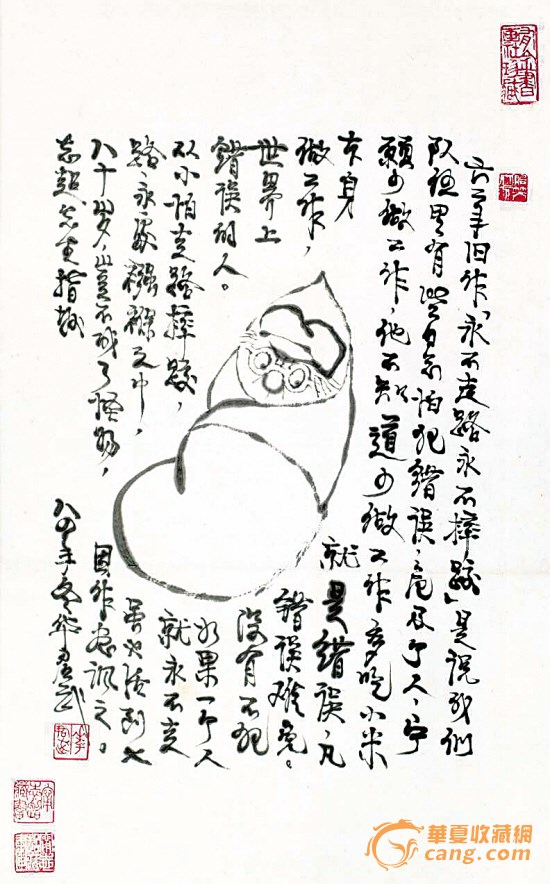 六二年旧作「永不走路永不摔跤」是说我们
队伍里有些同志怕犯错误、危及个人、宁
愿少做工作,他不知道少做工作多吃小米
本身就是错误,凡
做工作,错误难免。
世界上没有不犯
错误的人。如果一个人
从小怕走路摔跤,就永不走
路,永处襁褓之中,虽也活到七
八十岁,岂不成了怪物,因作画讽之。
志超指教
八四年冬华君武
華夏收藏網
cang.com